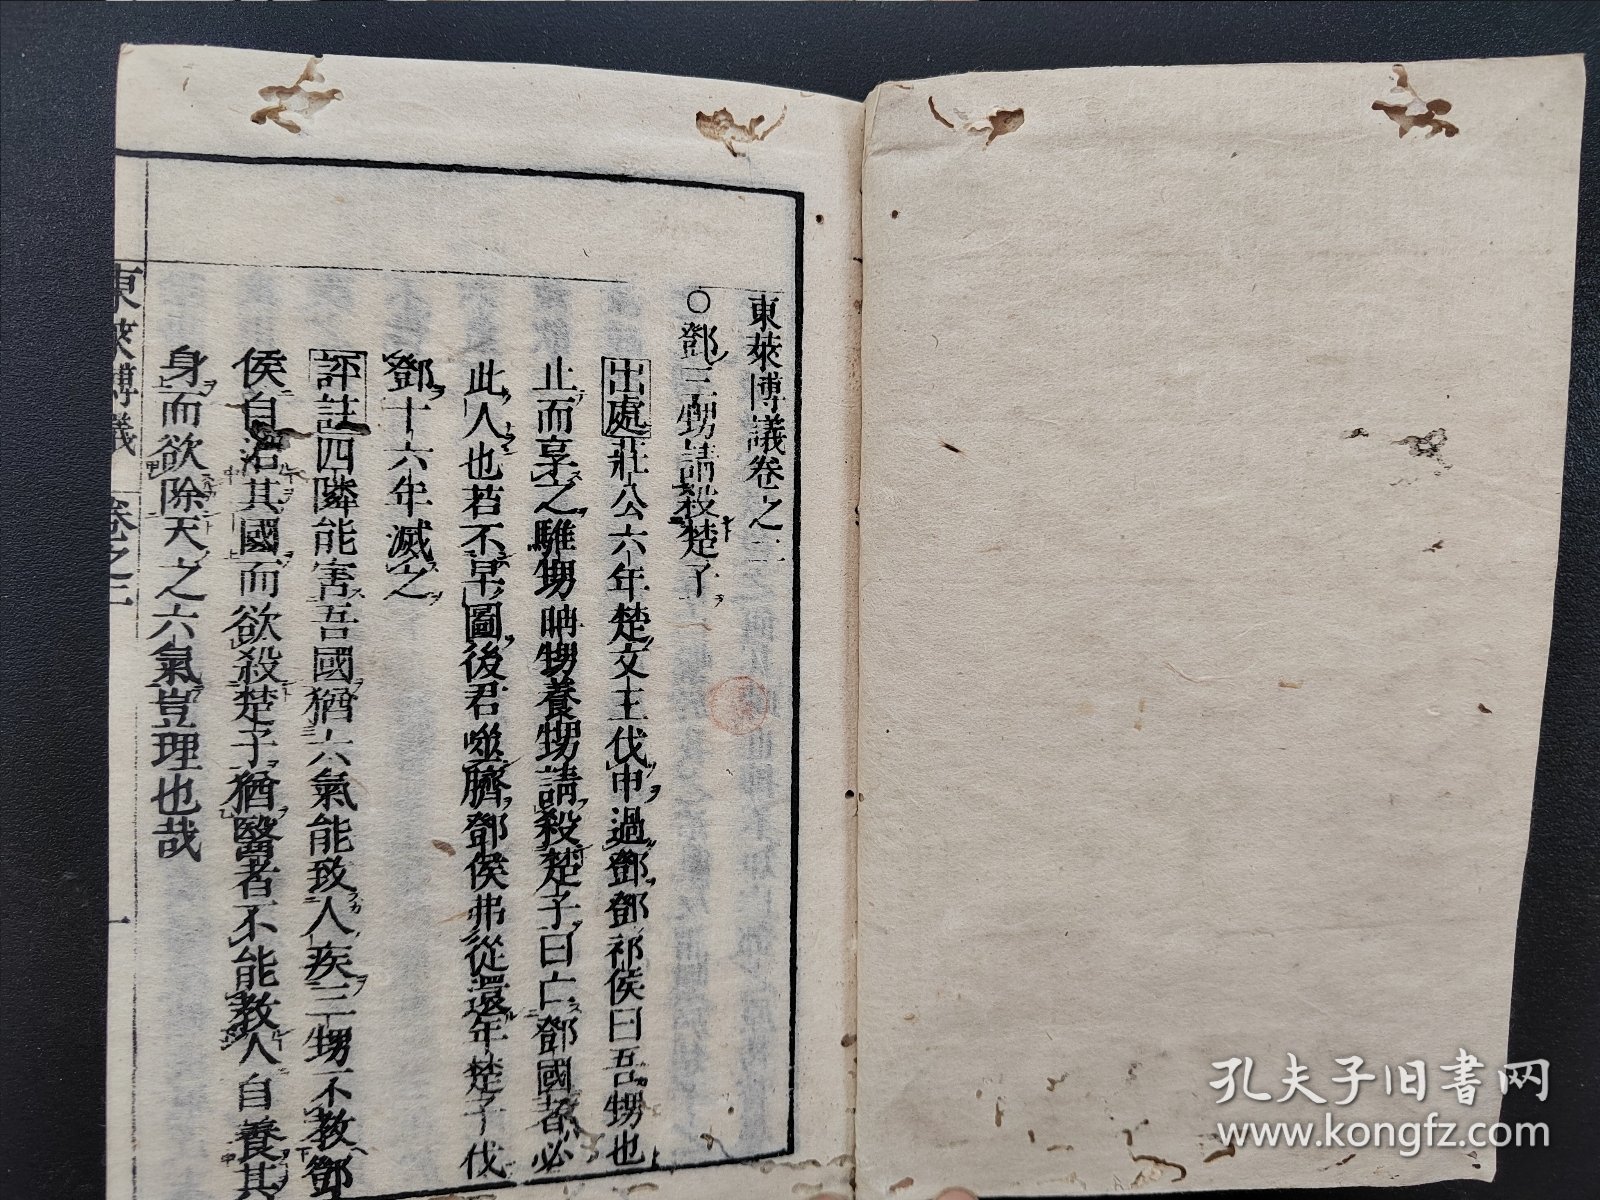 東萊博議卷之二
○鄧三甥請殺楚子
出處莊公六年楚文王伐申過鄧鄧祁侯曰吾甥也
止而享之騅甥聃甥養甥請殺楚子曰亡鄧國者必
此人也若不早圖後君噬臍鄧侯弗從還年楚子伐
鄧十六年滅之
評註四隣能害吾國猶六氣能致人疾三甥不教鄧
侯自治其國而欲殺楚子猶醫者不能教人自養其
身而欲除天之六氣豈理也哉
東萊博議 卷之二 一
孔夫子旧書网
www.kongfz.com